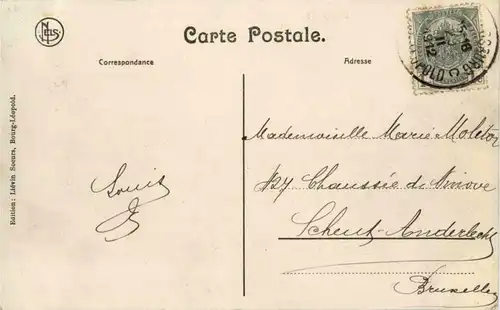 NELS
Carte Postale.
Correspondance
Adresse
Edition: Liévin Soeurs, Bourg-Léopold.
Louis
Mademoiselle Marie
Chaussée d. Ninove
Scheut-Anderlecht
Bruxelles